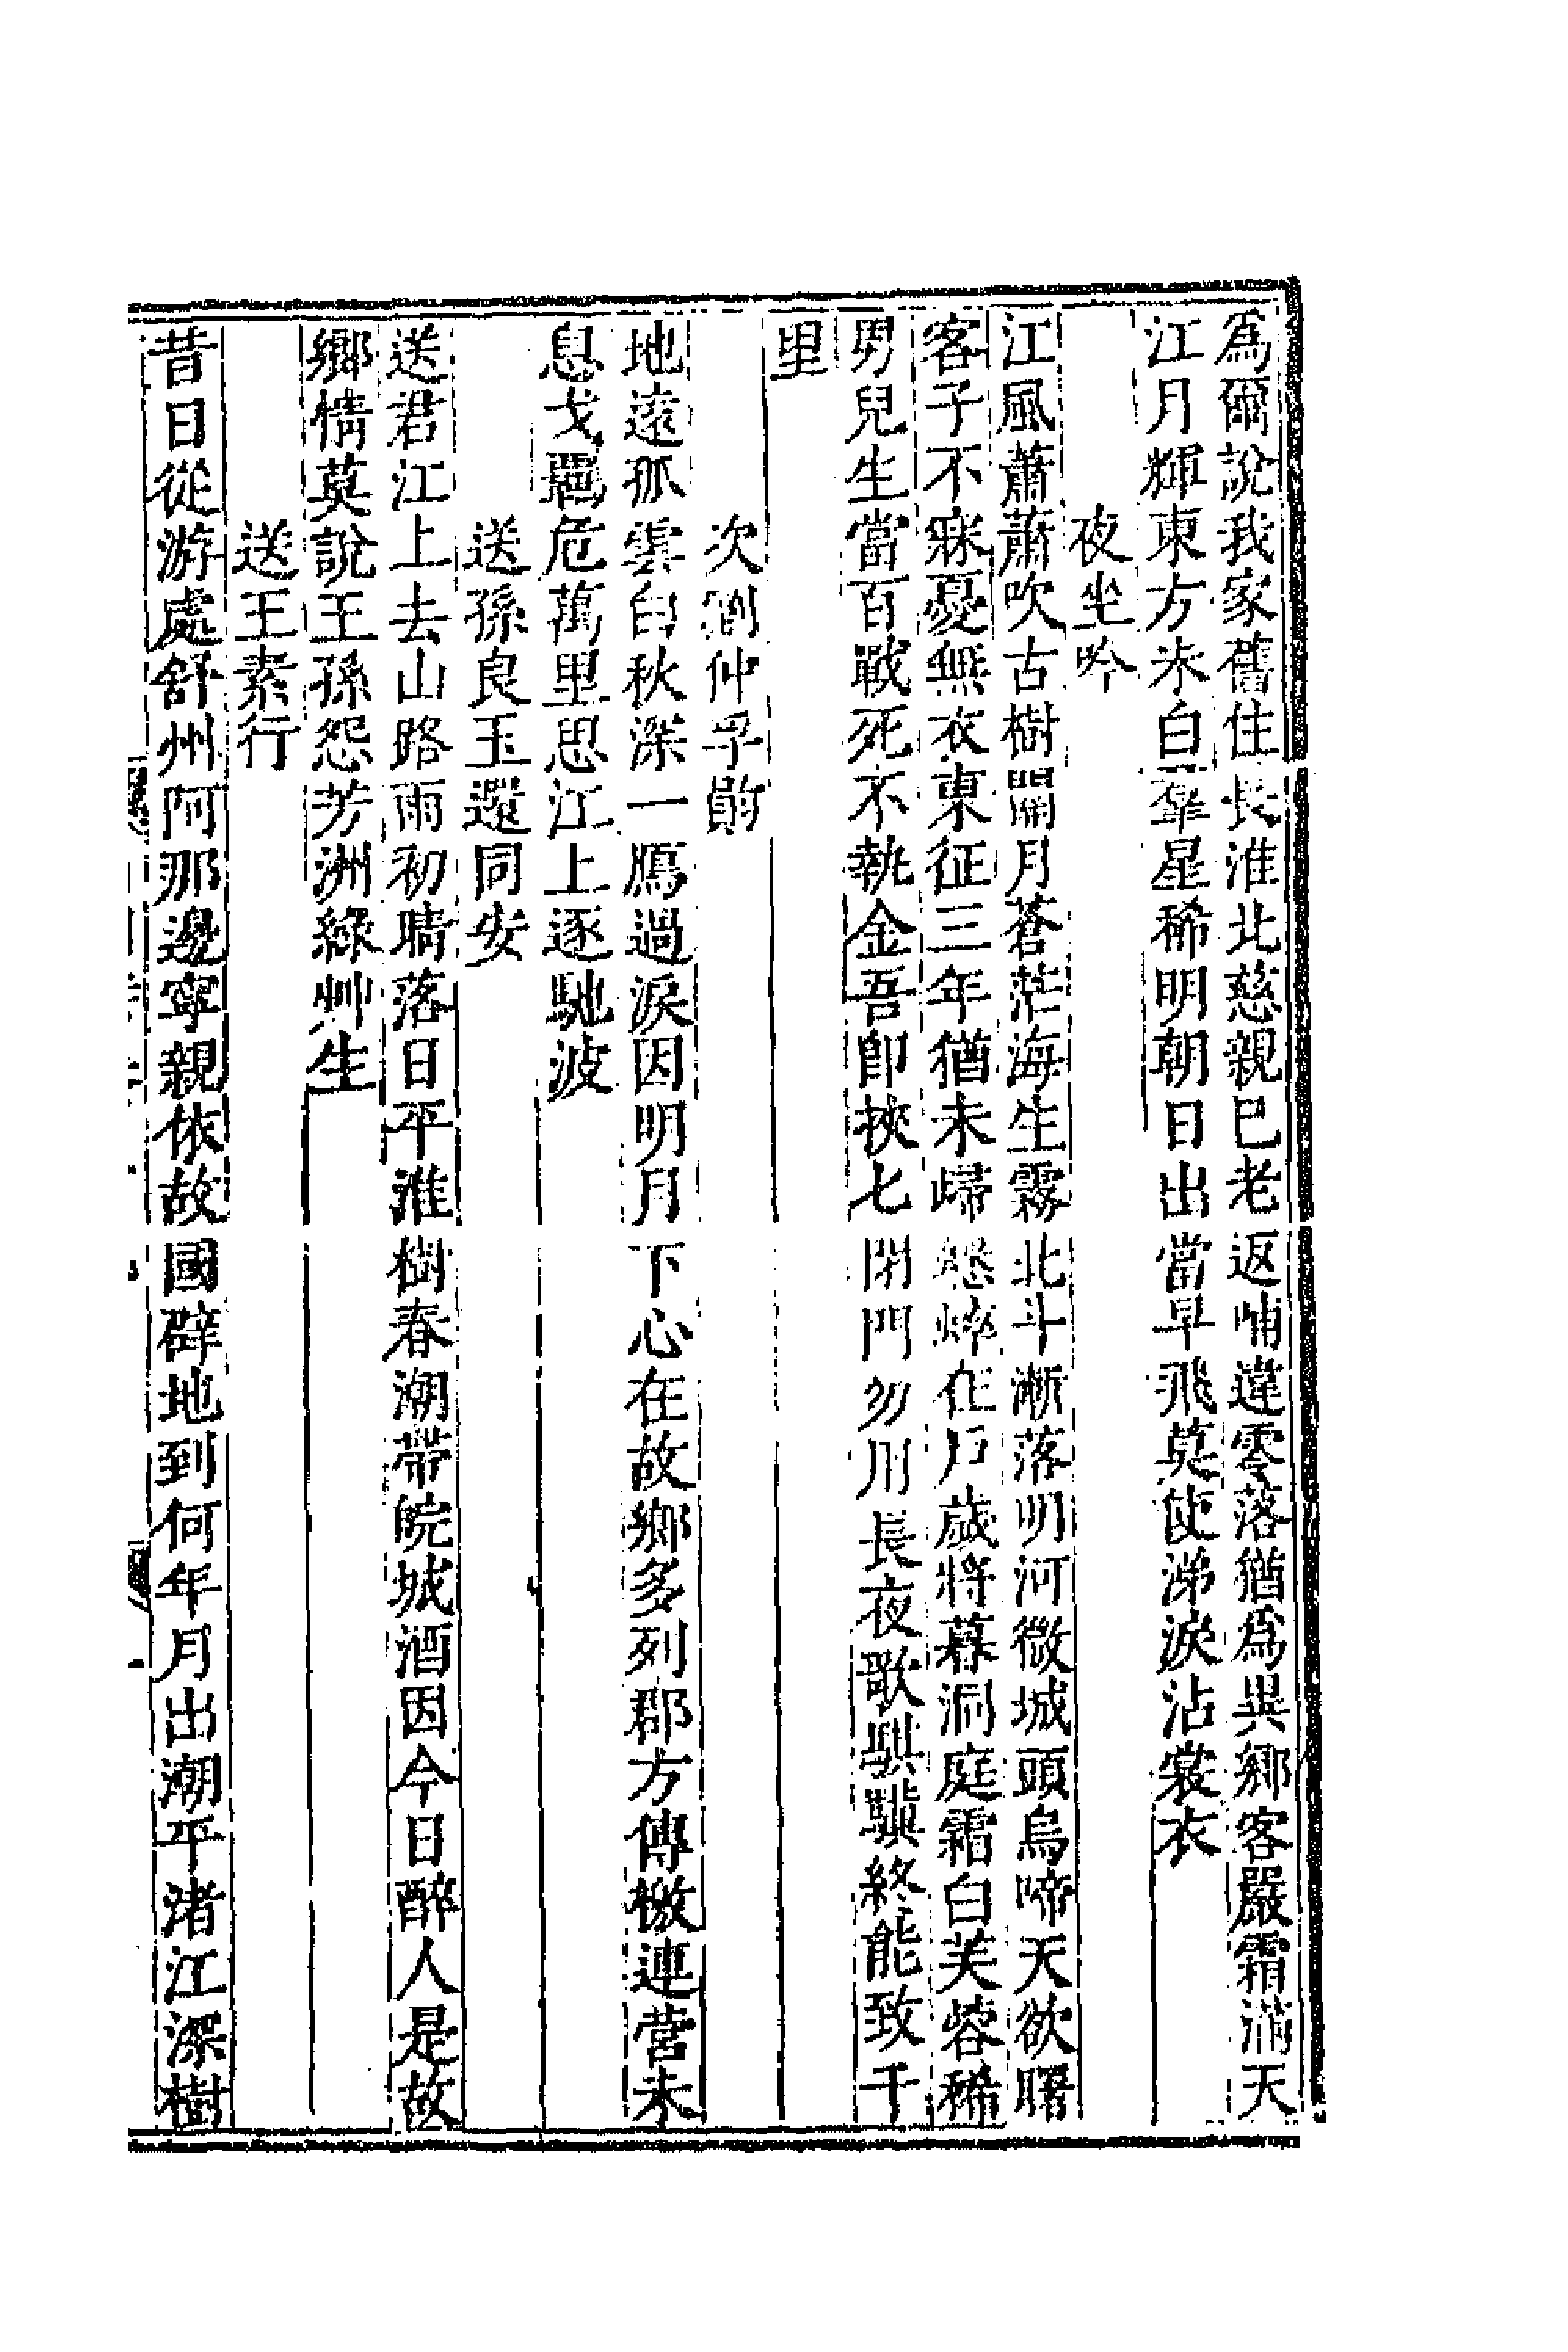 為爾說我家舊住長淮北慈親巳老返哺違零落猶為異鄉客嚴霜滿天
江月輝東方未白羣星稀明朝日出當早飛莫使涕淚沾裳衣
夜坐吟
江風蕭蕭吹古樹開月蒼茫海生霧北斗漸落明河微城頭烏啼天欲曙
客子不寐憂無衣東征三年猶未歸蟋蟀在戶歲將暮洞庭霜白芙蓉稀
男兒生當百戰死不執金吾即挾七閉門勿用長夜歌騏驥終能致千
里
次劉仲孚韻
地遠孤雲白秋深一鴈過淚因明月下心在故鄉多列郡方傳檄連營未
息戈羈危萬里思江上逐馳波
送孫良玉還同安
送君江上去山路雨初晴落日平淮樹春潮帶皖城酒因今日醉人是故
鄉情莫說王孫怨芳洲綠艸生
送王素行
昔日從游處舒州阿那邊寧親依故國辟地到何年月出潮平渚江深樹